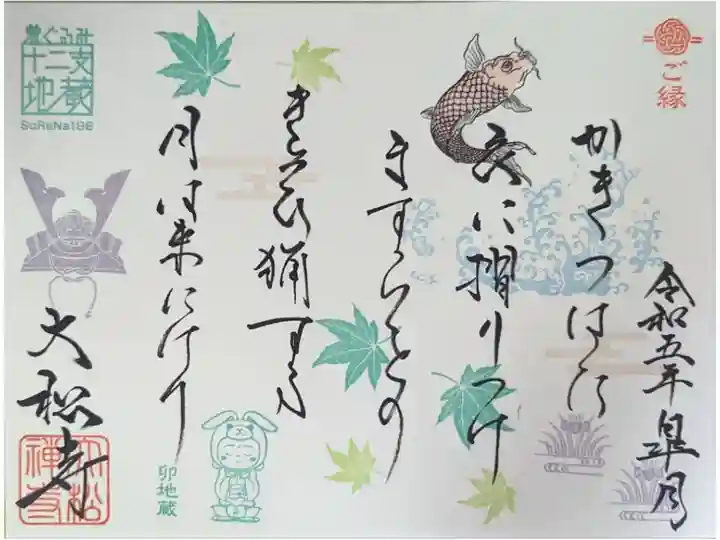 ご縁
令和五年 皐月
かきつはた
衣に摺りつけ
ますらをの
きそひ猟する
月は来にけり
着ぐるみ
十二支
地蔵
SoReNa196
大松寺
卯地蔵